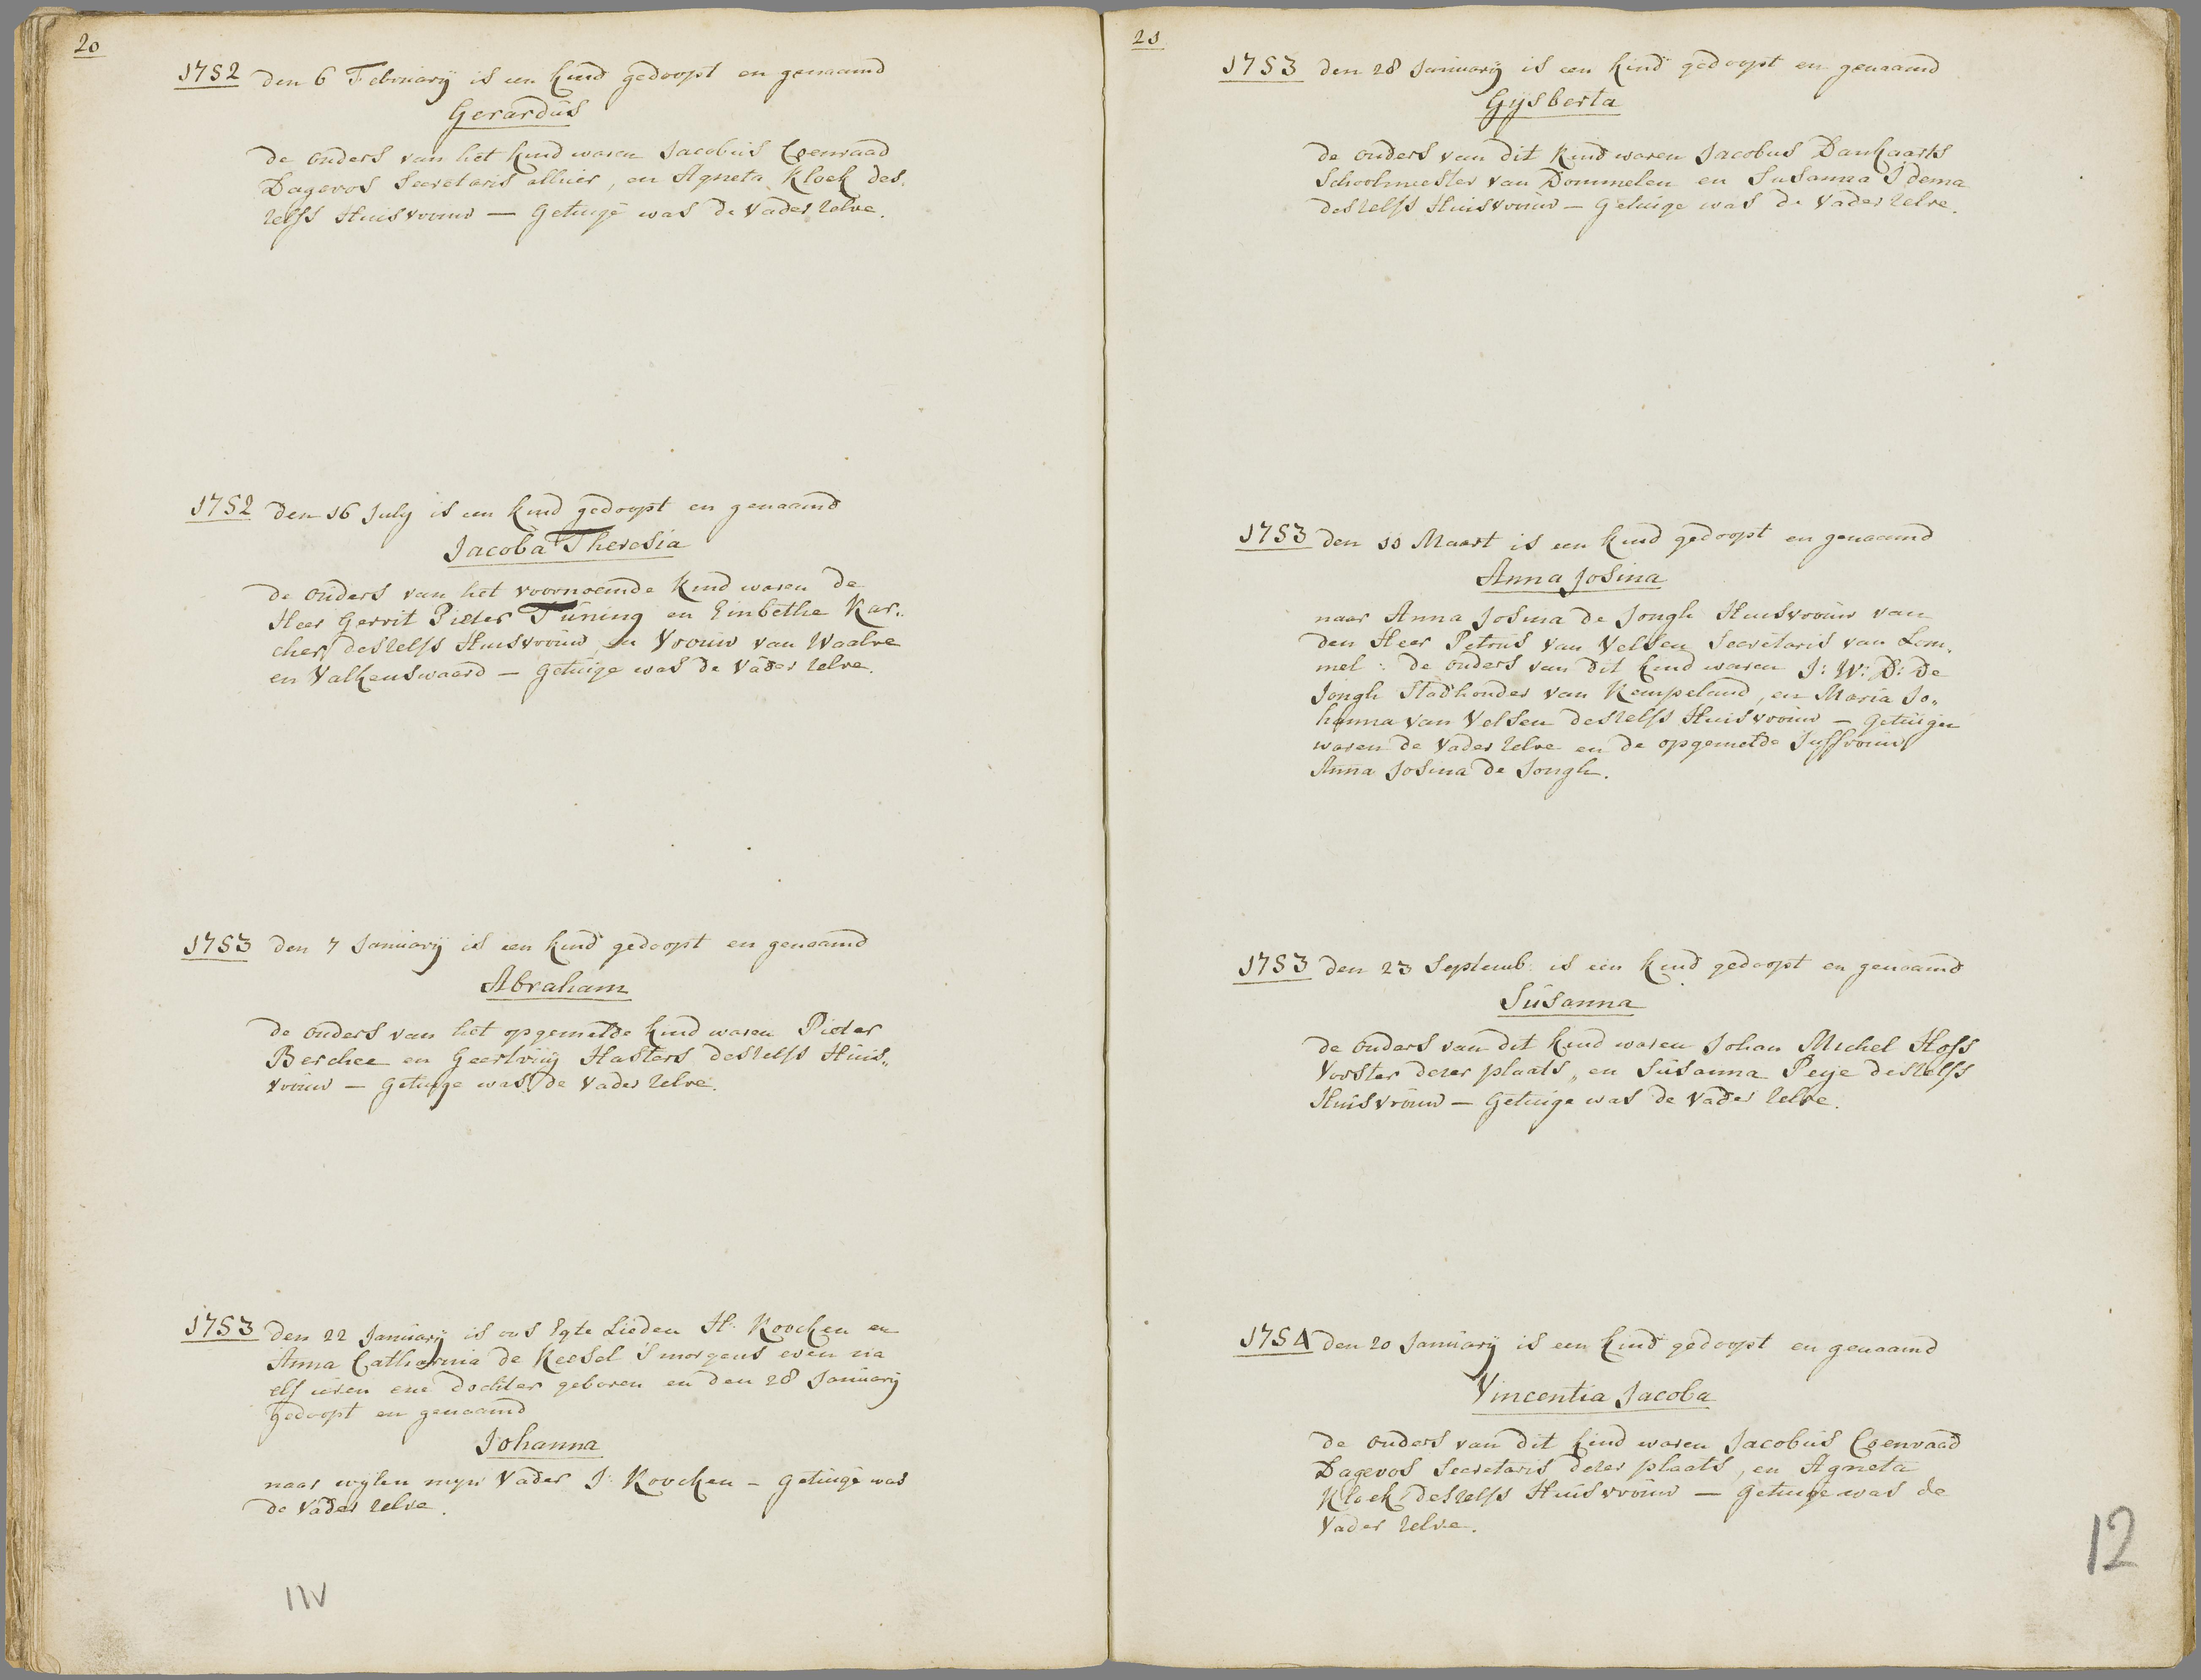 20
1752 den 6 February is een kind gedoopt en genaamd
Gerardus
de ouders van het kind waren Jacobus Coenraad
Dagevos Secretaris alhier, en Agneta Kloek des.
zelfs Huisvrouw — getuige was de Vader zelve.
1752 den 16 July is een kind gedoopt en genaamd
Jacoba Theresia
de ouders van het voornoemde kind waren de
Heer Gerrit Pieter Tuning en Einbethe Kar..
cher desselfs Huisvrouw, en Vrouw van Waalre
en Valkenswaard — getuige was de Vader zelve.
1753 den 7 January is een kind gedoopt en genaamd
Abraham
de ouders van het opgemelde kind waren Pieter
Berchee en Geertruy Hasters deszelfs Huis„
vrouw — getuige was de Vader zelve.
1753 den 22 January is ons Egte Lieden H. Roocken en
Anna Catharina de Keesel 's morgens even na
elf uren ene dochter geboren en den 28 January
gedoopt en genaamd
Johanna
naar wylen myn Vader J: Roocken — getuige was
de Vader zelve.
11v
21
1753 den 28 January is een kind gedoopt en genaamd
Gysberta
de ouders van dit kind waren Jacobus Dankaarts
Schoolmeester van Dommelen en Susanna Idema
deszelfs Huisvrouw — getuige was de Vader zelve.
1753 den 11 Maart is een kind gedoopt en genaamd
Anna Josina
naar Anna Josina de Jongh Huisvrouw van
den Heer Petrus van Velsen Secretaris van Lom.
mel: de ouders van dit kind waren J: W: D: De
Jongh Stadhouder van Kempeland, en Maria Jo„
hanna van Velsen deszelfs Huisvrouw — getuigen
waren de Vader zelve en de opgemelde Juffrouw
Anna Josina de Jongh.
1753 den 23 Septemb: is een kind gedoopt en genaamd
Susanna
de ouders van dit kind waren Johan Michel Hoff
Vorster dezer plaats, en Susanna Peye deszelfs
Huisvrouw — getuige was de Vader zelve.
1754 den 20 January is een kind gedoopt en genaamd
Vincentia Jacoba
de ouders van dit kind waren Jacobus Coenraad
Dagevos Secretaris dezer plaats, en Agneta
Kloek deszelfs Huisvrouw — getuige was de
Vader zelve.
12